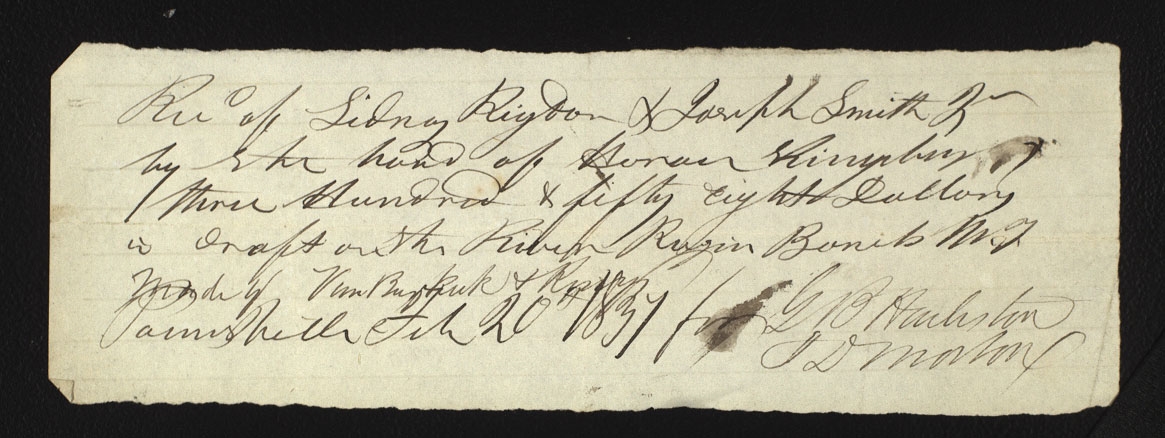 Recd of Sidney Rigdon & Joseph Smith Jr
by the hand of Horace Kingsbury
three Hundred & fifty eight Dollars
in draft on the River Raisin Bank M.T
Made by Van &
Painesville Feb 20th 1837 for G B
J D Morton